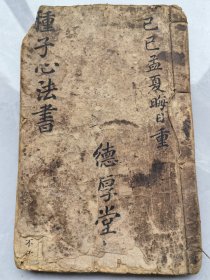 己巳孟夏晦日重
德厚堂
種子心法書